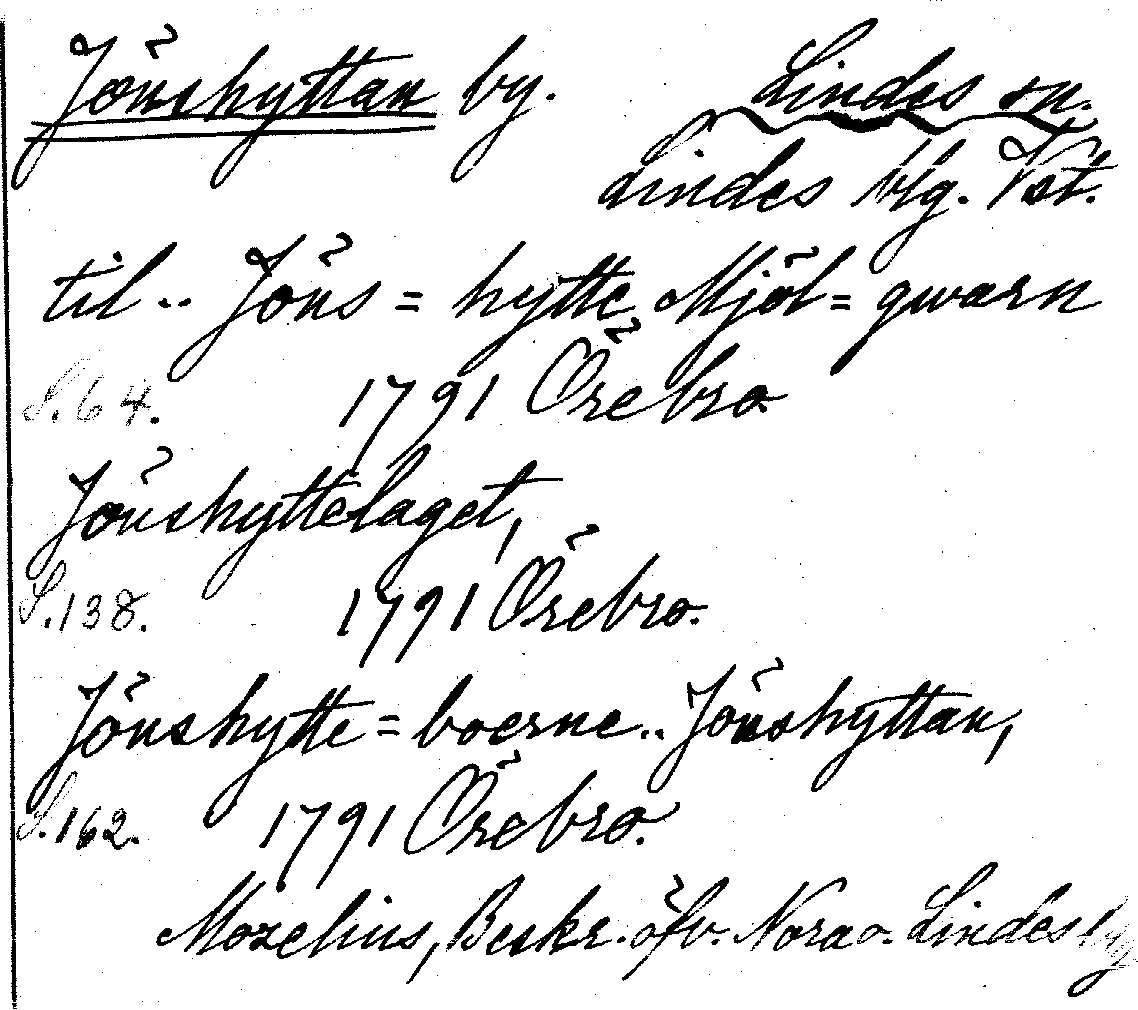 Jönshyttan by. Lindes sn.
Lindes blg. Vst.
til.. Jöns = hytte Mjöl = qwarn
S.64. 1791 Örebro
Jönshyttelaget,
S.138. 1791 Örebro.
Jönshytte = boerne.. Jönshyttan,
S.162. 1791 Örebro.
Mozelius, Beskr. öfv. Nora o. Lindes blg